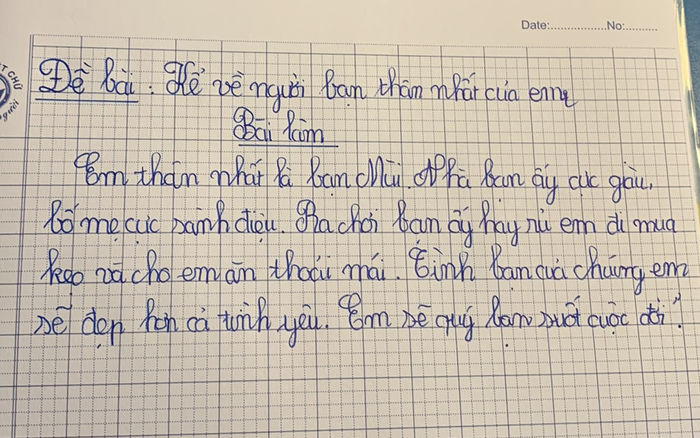 Date:................No:..........
Đề bài : Kể về người bạn thân nhất của em
Bài làm
Em thân nhất là bạn Mùi. Nhà bạn ấy cực giàu,
bố mẹ cực sành điệu. Ra chơi bạn ấy hay rủ em đi mua
kẹo và cho em ăn thoải mái. Tình bạn của chúng em
sẽ đẹp hơn cả tình yêu. Em sẽ quý bạn suốt cuộc đời.